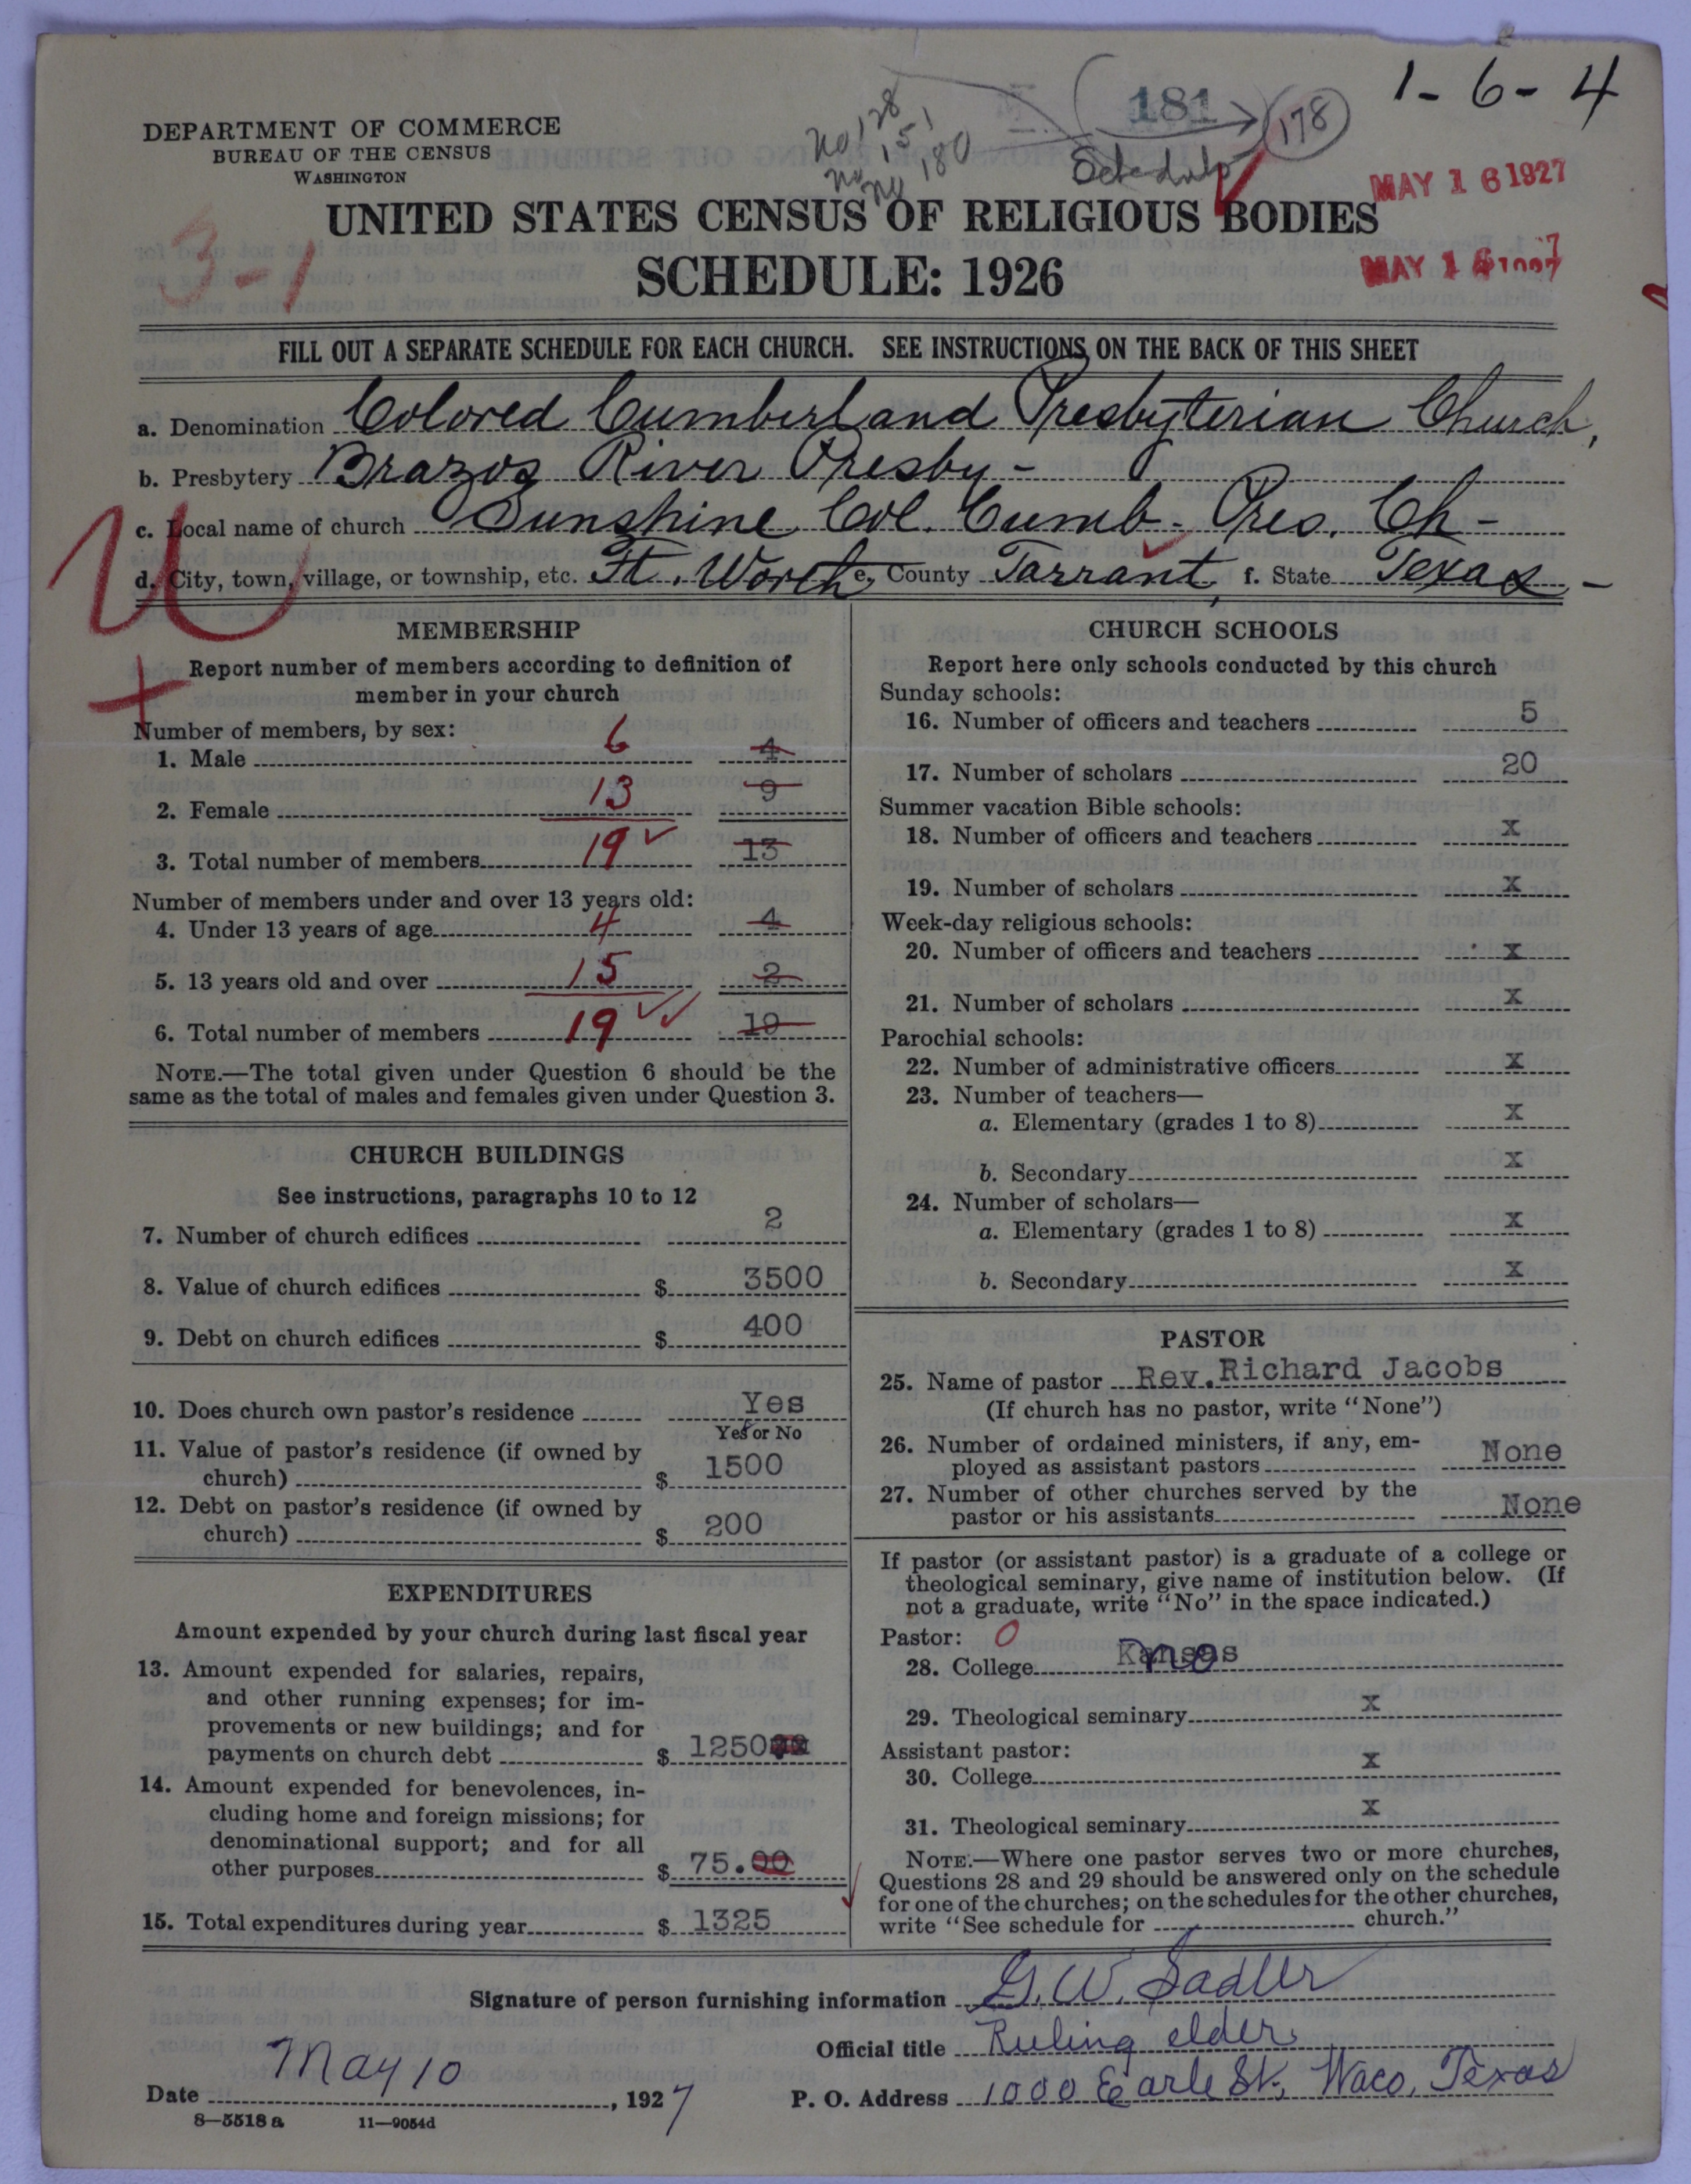 1-6-4
181
178
DEPARTMENT OF COMMERCE
BUREAU OF THE CENSUS
WASHINGTON
no 128
no 151
no 180
Schedule
MAY 16 1927
3-1
UNITED STATES CENSUS OF RELIGIOUS BODIES
SCHEDULE: 1926
MAY 16
FILL OUT A SEPARATE SCHEDULE FOR EACH CHURCH. SEE INSTRUCTIONS ON THE BACK OF THIS SHEET
a. Denomination Colored Cumberland Presbyterian Church,
b. Presbytery Brazos River Presby-
c. Local name of church Sunshine Col. Cumb. Pres. Ch-
d. City, town, village, or township, etc. Ft. Worth e. County Tarrant, f. State Texas-
U
MEMBERSHIP
Report number of members according to definition of
member in your church
Number of members, by sex:
1. Male 6 4
2. Female 13 9
3. Total number of members 19 13
Number of members under and over 13 years old:
4. Under 13 years of age 4 4
5. 13 years old and over 15 2
6. Total number of members 19 19
NOTE.—The total given under Question 6 should be the
same as the total of males and females given under Question 3.
CHURCH BUILDINGS
See instructions, paragraphs 10 to 12
7. Number of church edifices 2
8. Value of church edifices $ 3500
9. Debt on church edifices $ 400
10. Does church own pastor's residence Yes
Yes or No
11. Value of pastor's residence (if owned by
church) $ 1500
12. Debt on pastor's residence (if owned by
church) $ 200
EXPENDITURES
Amount expended by your church during last fiscal year
13. Amount expended for salaries, repairs,
and other running expenses; for im-
provements or new buildings; and for
payments on church debt $ 1250
14. Amount expended for benevolences, in-
cluding home and foreign missions; for
denominational support; and for all
other purposes $ 75.00
15. Total expenditures during year $ 1325
CHURCH SCHOOLS
Report here only schools conducted by this church
Sunday schools:
16. Number of officers and teachers 5
17. Number of scholars 20
Summer vacation Bible schools:
18. Number of officers and teachers x
19. Number of scholars x
Week-day religious schools:
20. Number of officers and teachers x
21. Number of scholars x
Parochial schools:
22. Number of administrative officers x
23. Number of teachers—
a. Elementary (grades 1 to 8) x
b. Secondary x
24. Number of scholars—
a. Elementary (grades 1 to 8) x
b. Secondary x
PASTOR
25. Name of pastor Rev. Richard Jacobs
(If church has no pastor, write "None")
26. Number of ordained ministers, if any, em-
ployed as assistant pastors None
27. Number of other churches served by the
pastor or his assistants None
If pastor (or assistant pastor) is a graduate of a college or
theological seminary, give name of institution below. (If
not a graduate, write "No" in the space indicated.)
Pastor: 0
28. College Kansas no
29. Theological seminary x
Assistant pastor:
30. College x
31. Theological seminary x
NOTE.—Where one pastor serves two or more churches,
Questions 28 and 29 should be answered only on the schedule
for one of the churches; on the schedules for the other churches,
write "See schedule for church."
Signature of person furnishing information G. W. Sadler
Official title Ruling elder
Date May 10, 1927 P. O. Address 1000 Earle St. Waco, Texas
8—5518a 11—9054d